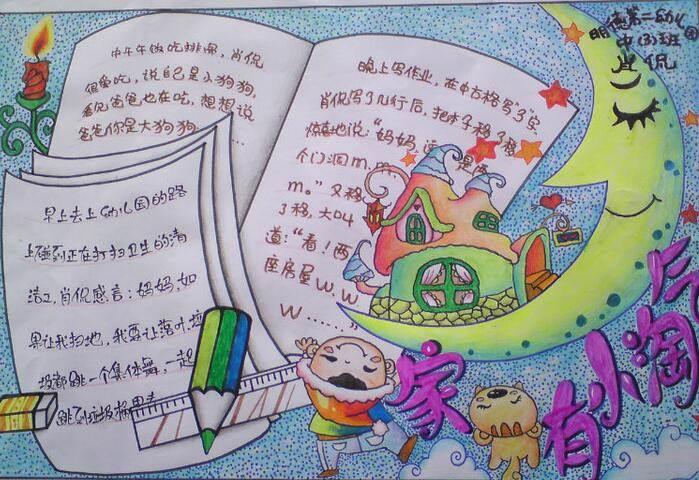 明德第二幼儿园
中(3)班
肖侃
中午午做吃排骨,肖侃
很爱吃,说自己是小狗狗,
看见爸爸也在吃,想想说
爸爸你是大狗狗……
晚上写作业,在中古格写了家
肖侃写了几行后,把本子移了移
惊奇地说:"妈妈,这 是两
个门洞m.m.
m。"又移
了移,大叫
道:"看!两
座房屋W.W
W……"
早上去上幼儿园的路
上碰到正在打扫卫生的清
洁工,肖侃感言:妈妈,如
果让我扫地,我要让落叶垃
圾都跳一个集体舞,一起
跳到垃圾桶里去
家有小淘气